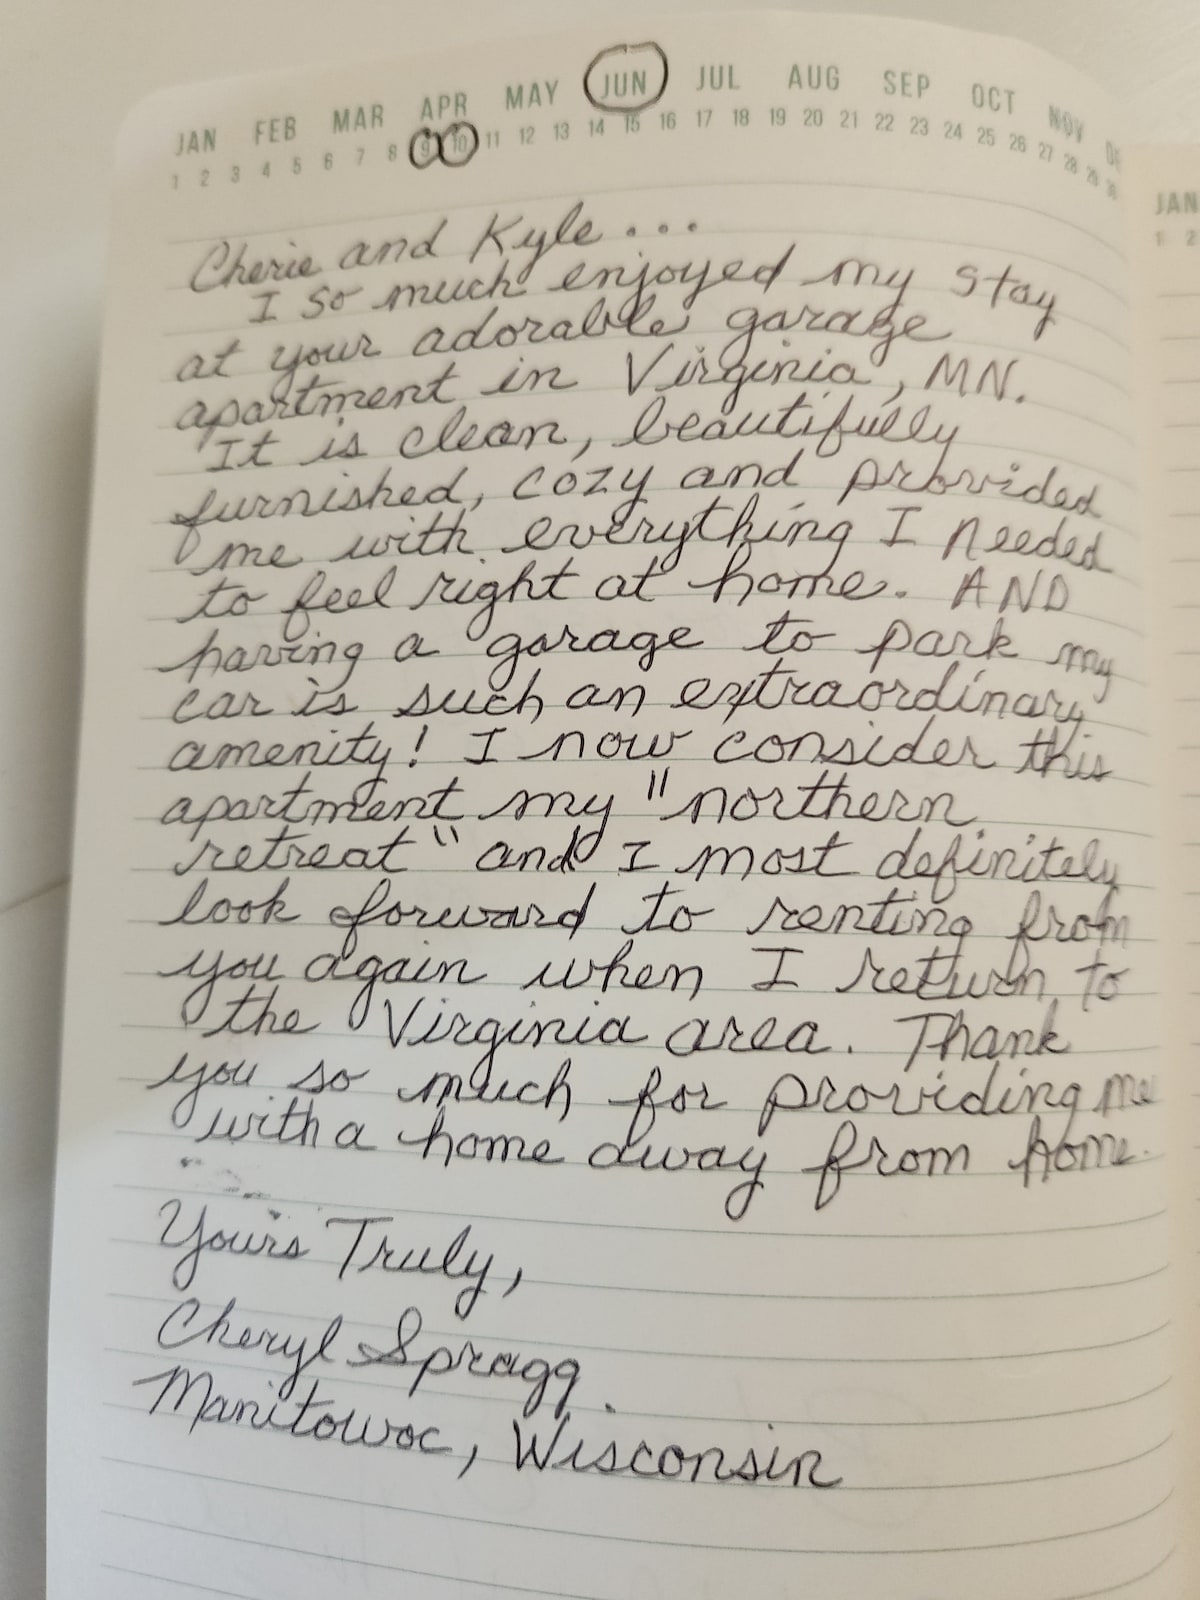 JAN FEB MAR APR MAY JUN JUL AUG SEP OCT NOV
1 2 3 4 5 6 7 8 9 10 11 12 13 14 15 16 17 18 19 20 21 22 23 24 25 26 27 28 29 30
JAN
1 2
Cherie and Kyle...
I so much enjoyed my stay
at your adorable garage
apartment in Virginia, MN.
It is clean, beautifully
furnished, cozy and provided
me with everything I needed
to feel right at home. AND
having a garage to park my
car is such an extraordinary
amenity! I now consider this
apartment my "northern
retreat" and I most definitely
look forward to renting from
you again when I return to
the Virginia area. Thank
you so much for providing me
with a home away from home.
Yours Truly,
Cheryl Spragg.
Manitowoc, Wisconsin